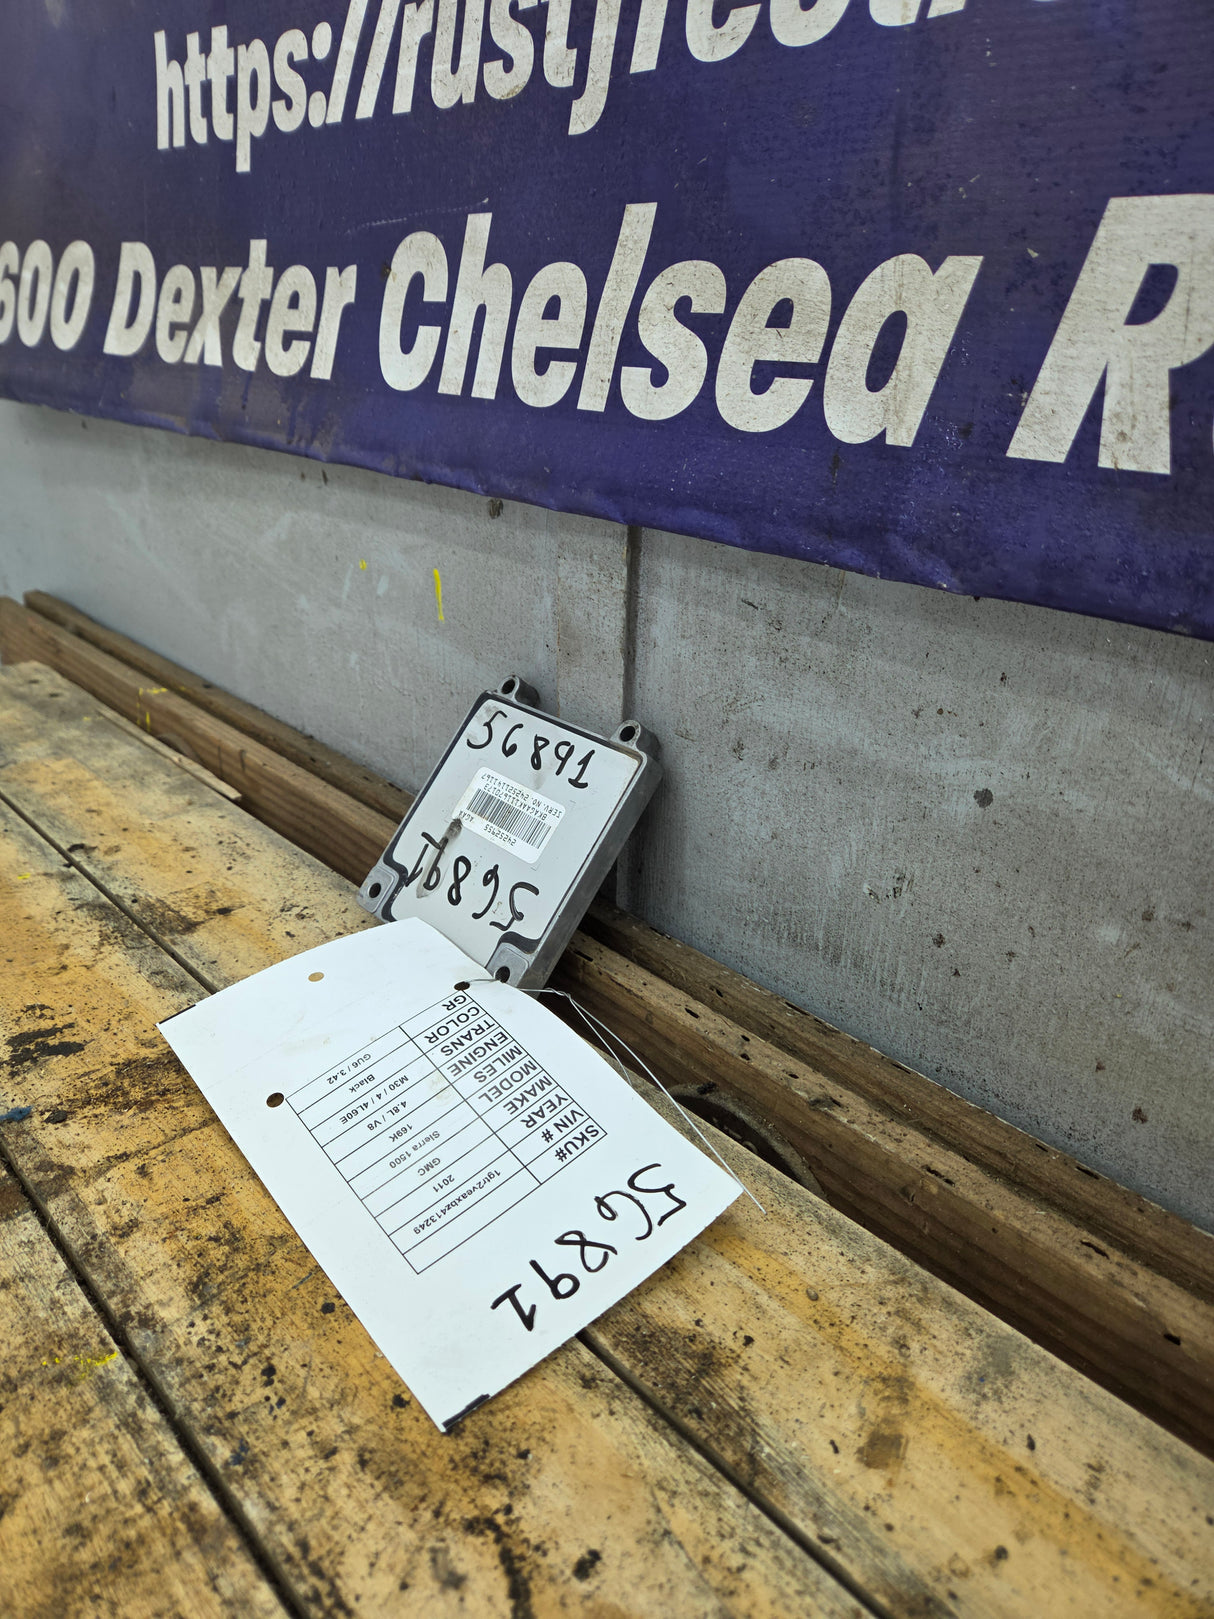 https://rustyfree
600 Dexter Chelsea R
56891
24252955 XCAN
8KAGAAK111670173
SERV. NO. 24252114
56891
56891
SKU#
VIN # 1gtr2veaxbz413249
YEAR 2011
MAKE GMC
MODEL Sierra 1500
MILES 169K
ENGINE 4.8L / V8
TRANS M30 / 4 / 4L60E
COLOR Black
GR GU6 / 3.42